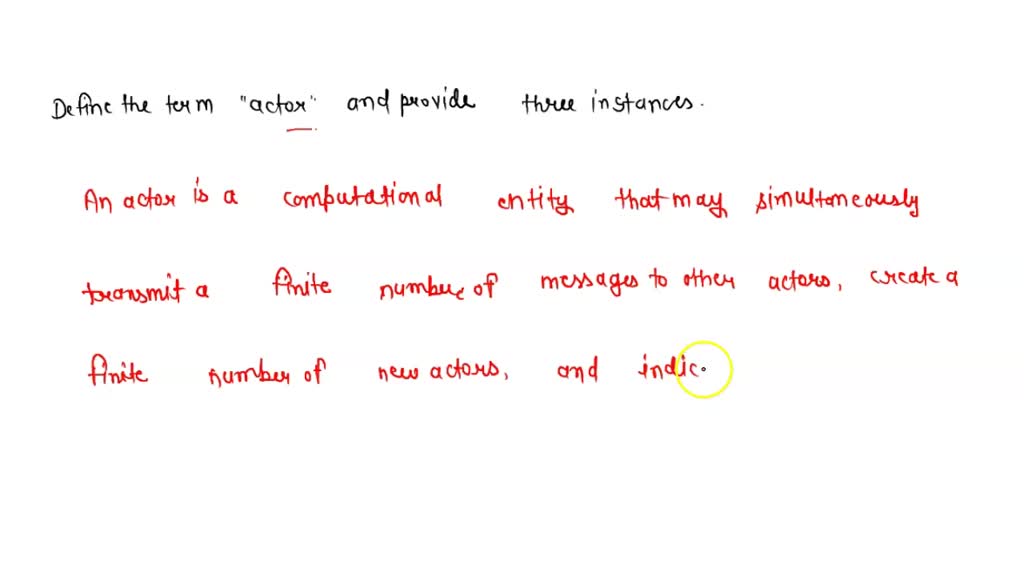 Define the term "actor" and provide three instances.
An actor is a computational entity that may simultaneously
transmit a finite number of messages to other actors, create a
finite number of new actors, and indic